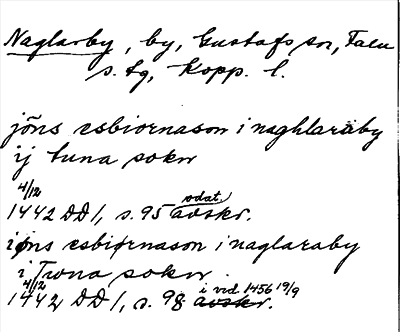 Naglarby, by, Gustafs sn, Falu
s. tg, Kopp. l.
jõns esbiornason i naghlaräby
ij tuna sokn
4/12 odat.
1442 DD 1, s. 95 avskr.
iøns esbiørnason i naglaraby
i Twna sokn
4/12 i vid. 1456 19/9
1442 DD 1, s. 98 avskr.